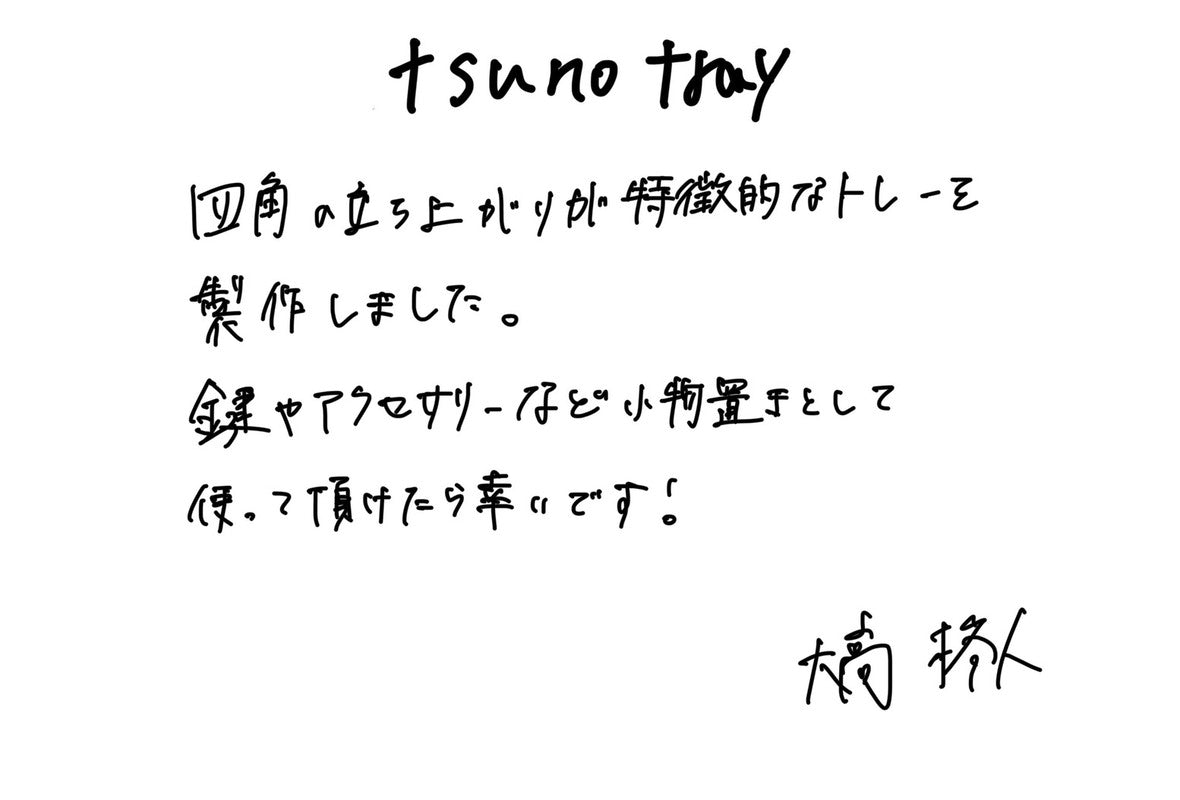 tsuno tray
四角の立ち上がりが特徴的なトレーを
製作しました。
鍵やアクセサリーなど小物置きとして
使って頂けたら幸いです！